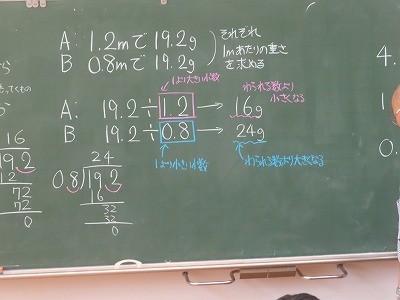 A: 1.2mで 19.2g
B 0.8mで 19.2g
それぞれ
1mあたりの重さ
を求める
1より大きい小数
わられる数より
小さくなる
A: 19.2÷1.2→16g
B 19.2÷0.8→24g
1より小さい小数
わられる数より大きくなる
16
19.2
12
72
72
0
24
0.8)19.2
16
32
32
0
4.
1
0.